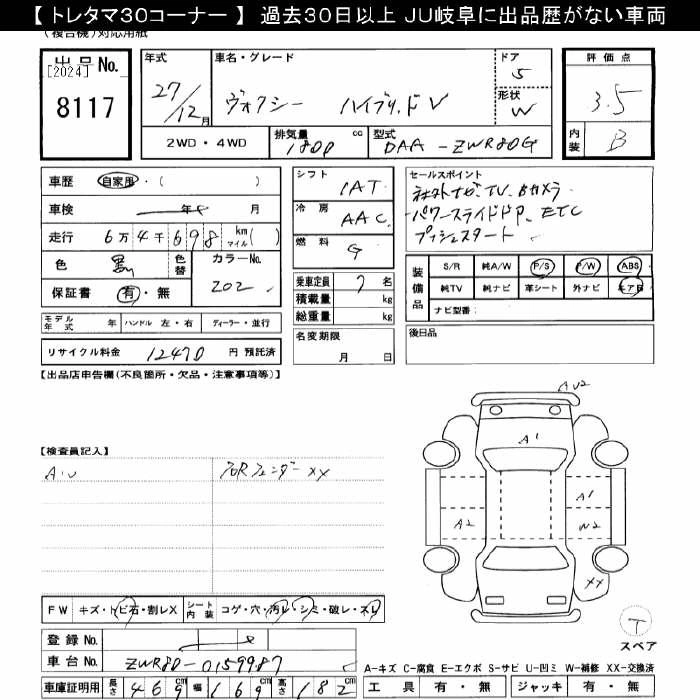 【 トレタマ30コーナー 】 過去30日以上 JU岐阜に出品歴がない車両
(複合機)対応用紙
出品No.
[2024]
8117
年式
27/12月
車名・グレード
ヴォクシー ハイブリッドV
ドア
5
形状
W
評価点
3.5
内装
B
2WD・4WD
排気量
1800 cc
型式
DAA-ZWR80G
車歴 自家用・( )
車検 年 月
走行 6万4千698 km マイル( )
色 黒
色替
カラーNo.
202
保証書 有・無
シフト
IAT
冷房
AAC
燃料
G
乗車定員 7名
積載量 kg
総重量 kg
セールスポイント
社外ナビ、TV、Bカメラ
パワースライドドア、ETC
プッシュスタート
装備品
S/R 純A/W P/S P/W ABS
純TV 純ナビ 革シート 外ナビ エアB
ナビ型番:
モデル年式 年 ハンドル 左・右 ディーラー・並行
リサイクル料金 12470 円 預託済
名変期限
月 日
後日品
【出品店申告欄(不良箇所・欠品・注意事項等)】
AU2
A1
【検査員記入】
A・U
右Rフェンダー××
A1
A2
W2
××
FW キズ・トビ石・割レX シート内装 コゲ・穴・汚レ・シミ・破レ・スレ
T
スペア
登録No.
車台No. ZWR80-0159987
A-キズ C-腐食 E-エクボ S-サビ U-凹ミ W-補修 XX-交換済
車庫証明用 長さ 469cm 幅 169cm 高さ 182cm
工具 有・無 ジャッキ 有・無